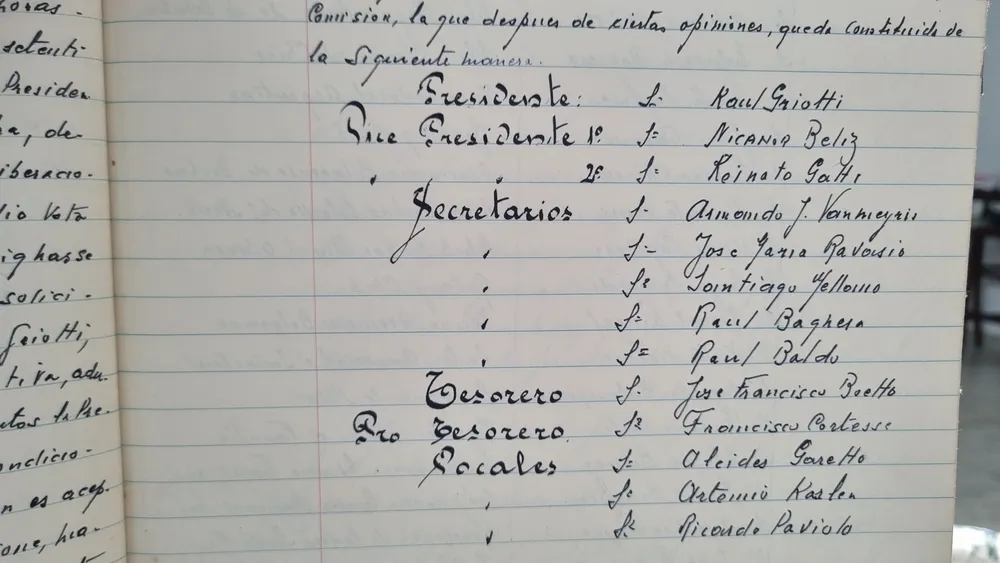 horas.
setenti-
Presiden
ha, de-
liberacio-
lio Vota
ighasse
solici-
Griotti,
tiva, adu-
ntos la Pre.
ondicio-
n es acep-
one, ha-
Comision, la que despues de ciertas opiniones, queda constituida de
la siguiente manera.
Presidente: S- Raul Griotti
Vice Presidente 1º S= Nicanor Beliz
" " " 2º S- Reinato Gatti
Secretarios S- Armando J. Vanmeyris
" S- Jose Maria Ravasio
" Sr Santiago Mellomo
" S= Raul Baghesa
" S= Raul Baldo
Tesorero S- Jose Francisco Boetto
Pro Tesorero Sr Francisco Cortesse
Vocales S= Alcides Garetto
" Sr Artemio Karlen
" Sr Ricardo Paviolo